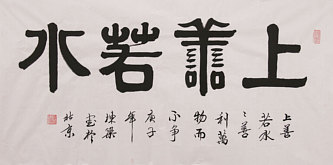 上善若水
上善
若水
〻善
利萬
物而
不争
庚子
年
陳
書於
北京